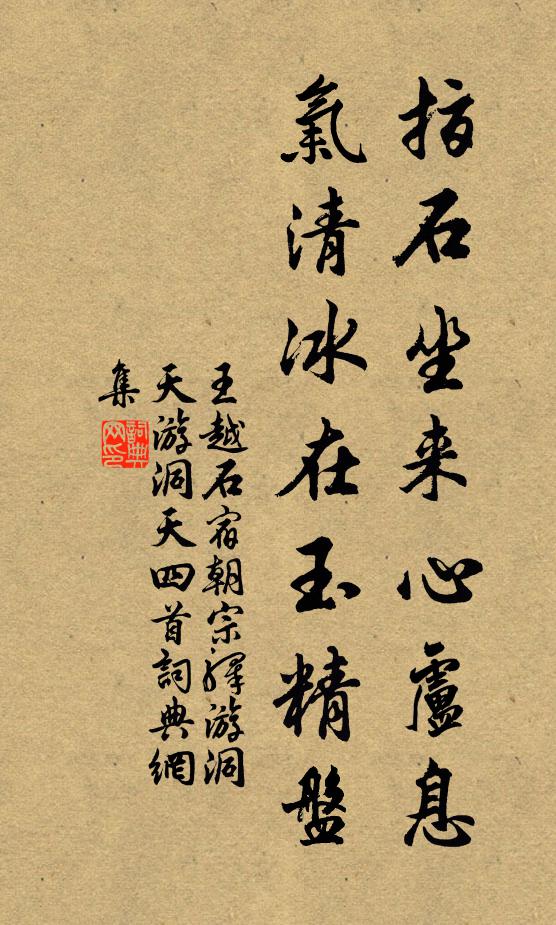 石坐来心盧息
氣清冰在玉精盤
王越石宿朝宗驛游洞
天游洞天四首詞典網
集
詞典
网印